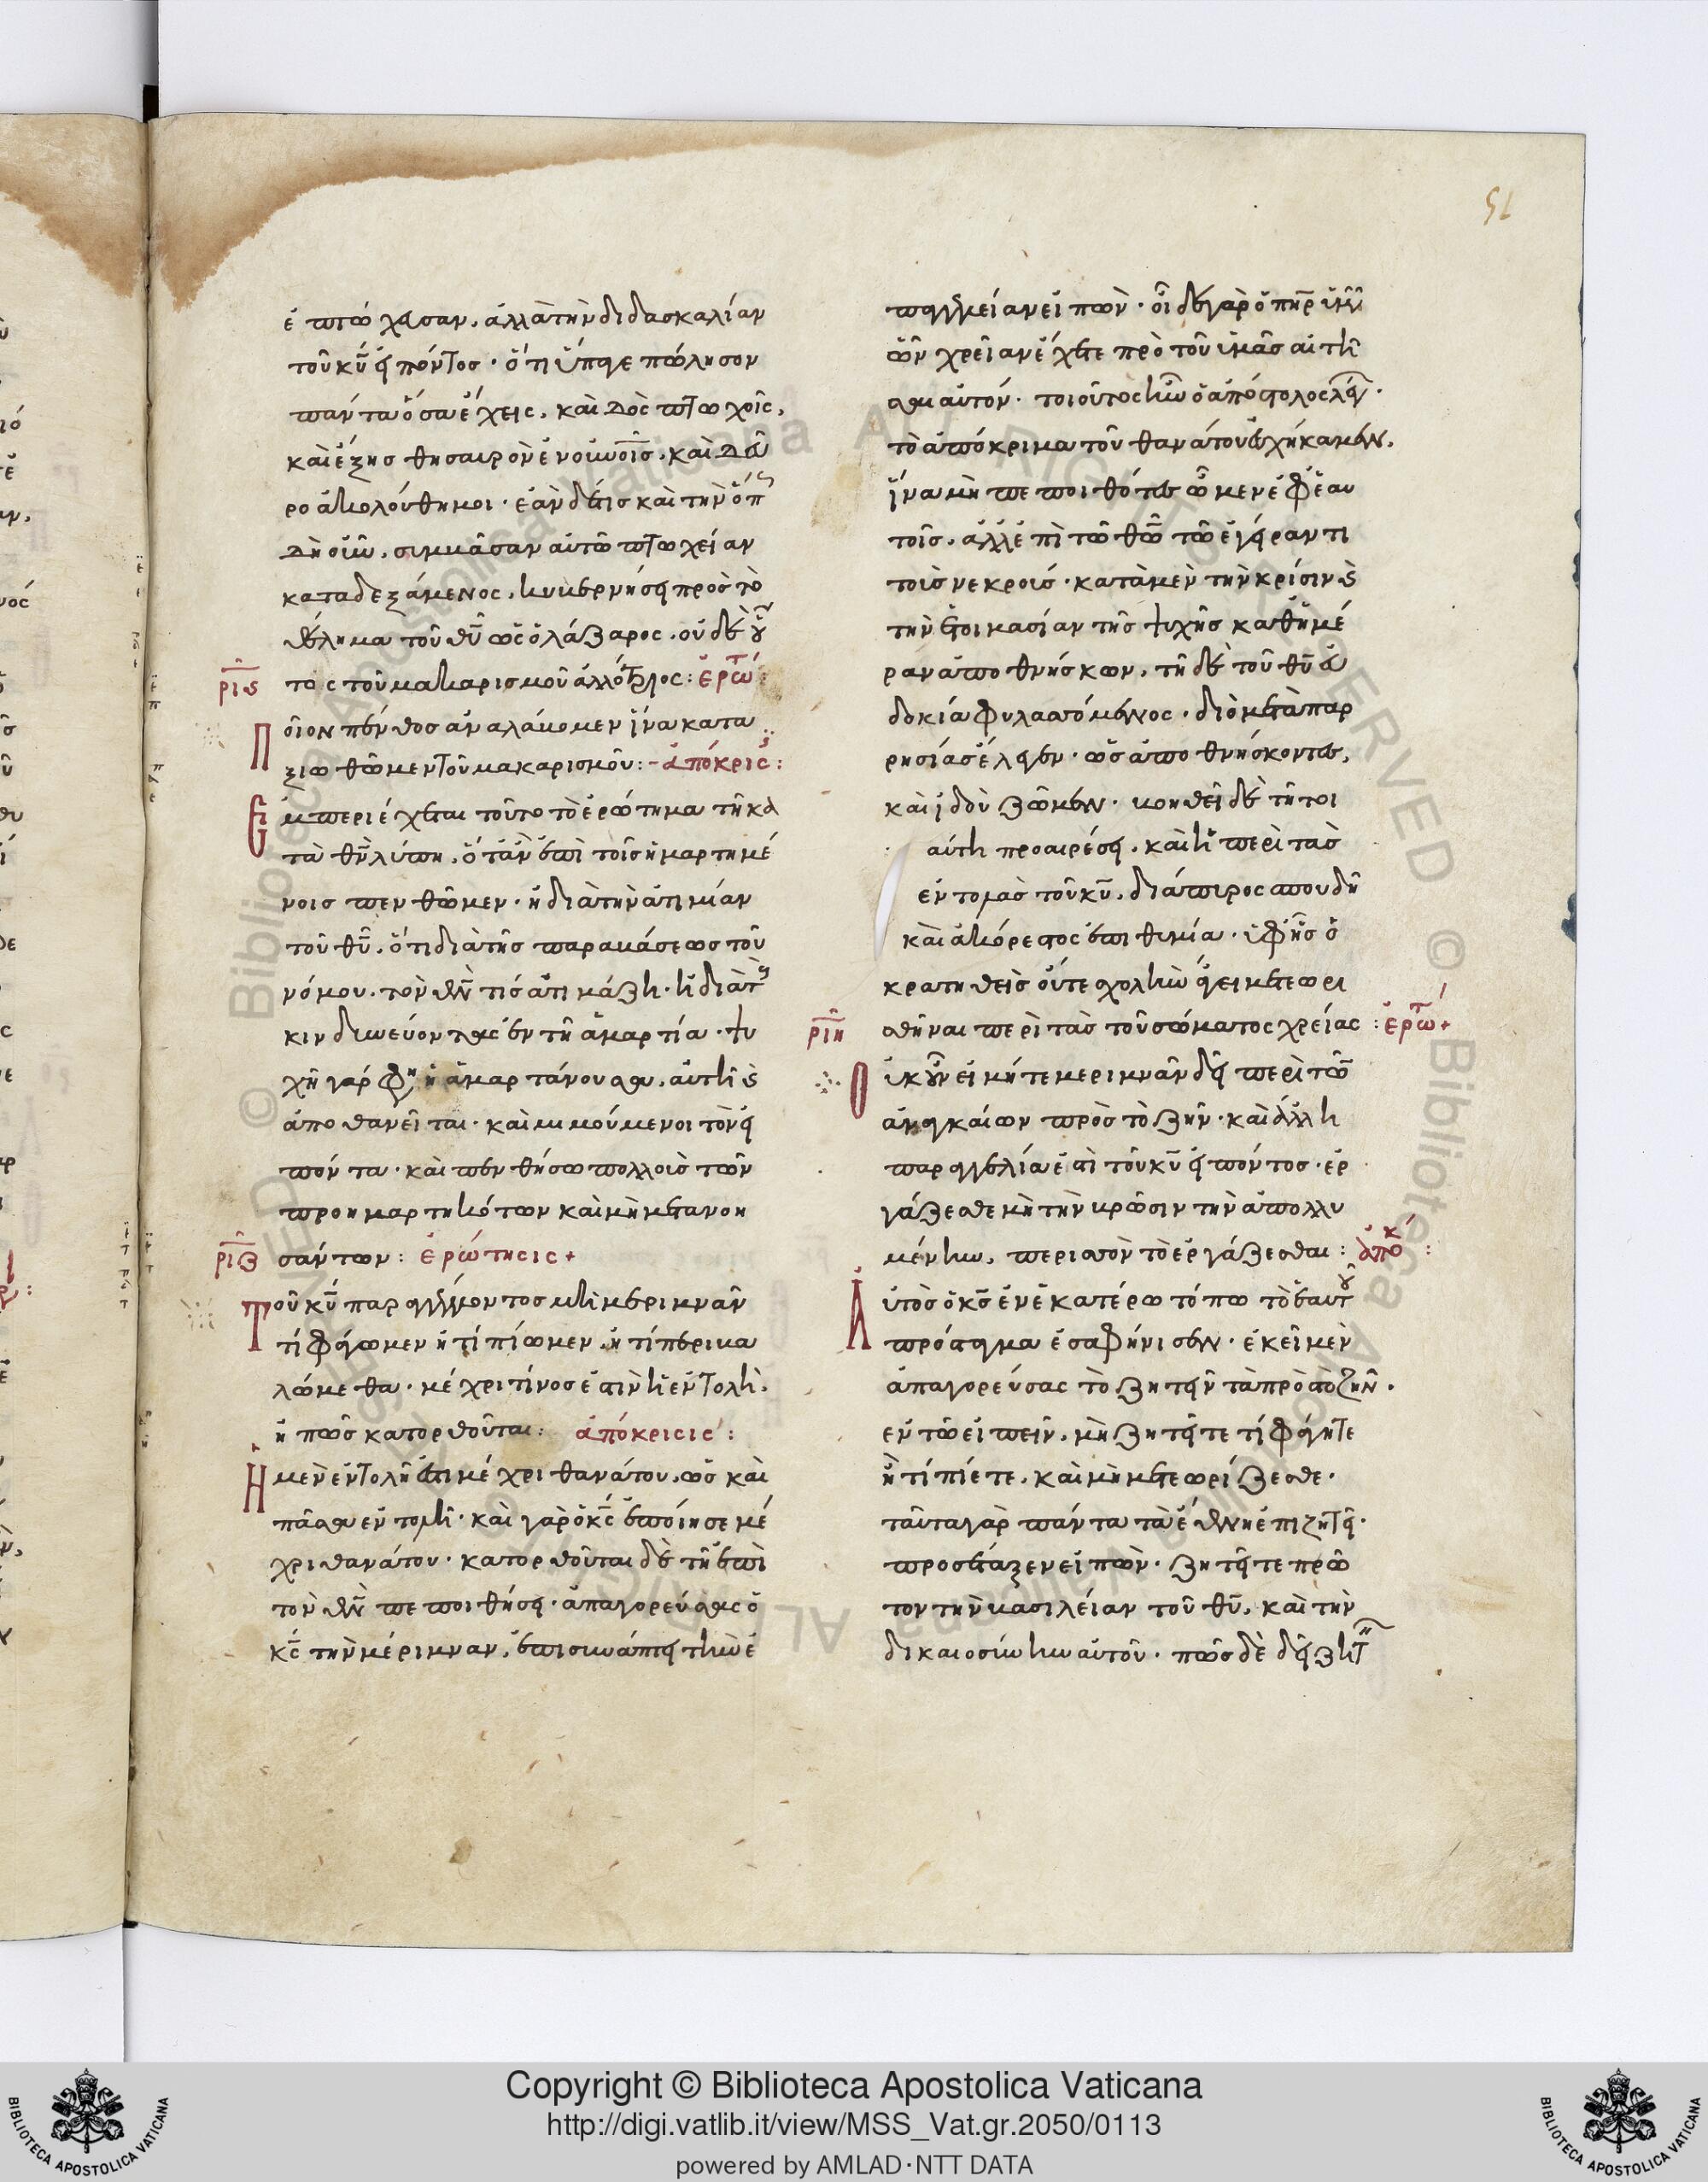 51
ἐπτώχασαν, ἀλλὰ τὴν διδασκαλίαν
τοῦ κῦ εἰπόντος· ὅτι ὕπαγε πώλησον
πάντα ὅσα ἔχεις, καὶ δὸς πτωχοῖς,
καὶ ἕξης θησαυρὸν ἐν οὐνοῖς, καὶ δεῦ
ρο ἀκολούθη μοι· ἐὰν δέ τις καὶ τὴν ὁπ
δηοῦν, συμβᾶσαν αὐτῶ πτωχείαν
καταδεξάμενος, κυβερνήσει πρὸς τὸ
θέλημα τοῦ θῦ ὡς ὁ λάζαρος, οὐδὲ οὗ
ριϛ τος τοῦ μακαρισμοῦ ἀλλότριος: ἐρώτ
Ποῖον πένθος ἀναλάβομεν ἵνα κατα
ξιωθῶμεν τοῦ μακαρισμοῦ:- ἀπόκρις:
Ἐμπεριέχεται τοῦτο τὸ ἐρώτημα τῆ κα
τὰ θν λύπη, ὅταν ἐπὶ τοῖς ἡμαρτημέ
νοις πενθῶμεν· ἢ διὰ τὴν ἀτιμίαν
τοῦ θῦ, ὅτι διὰ τῆς παραβάσεως τοῦ
νόμου, τὸν θν τὶς ἀτιμάζη· ἢ διὰ τοὺς
κινδυνεύοντας ἐν τῆ ἁμαρτία· ψυ
χὴ γάρ φη ἡ ἁμαρτάνουσα, αὐτὴ ϛ
ἀποθανεῖται· καὶ μιμούμενοι τὸν εἰ
πόντα· καὶ πενθήσω πολλοὺς τῶν
προημαρτηκότων καὶ μὴ μετανοη
ριζ σάντων: ἐρώτησις +
Τοῦ κῦ παραγγέλλοντος μὴ μεριμνᾶν
τί φάγωμεν ἢ τί πίωμεν, ἢ τί περιβα
λώμεθα· μέχρι τίνος ἐστὶν ἡ ἐντολὴ,
ἢ πῶς κατορθοῦται: ἀπόκρισις:
Ἡ μὲν ἐντολὴ ἐστι μέχρι θανάτου, ὡς καὶ
πᾶσα ἐντολὴ· καὶ γὰρ ὁ κς ἐποίησε μέ
χρι θανάτου· κατορθοῦται δὲ τῆ ἐπὶ
τὸν θν πεποιθήσει· ἀπαγορεύσας ὁ
κς τὴν μέριμναν, ἐπισυνάπτει τὴν ἐ
παγγελείαν εἰπὼν· οἶδε γὰρ ὁ πηρ ὑμῶν
ὧν χρείαν ἔχετε πρὸ τοῦ ὑμᾶς αἰτῆ
σαι αὐτόν· τοιοῦτος ἦν ὁ ἀπόστολος λέγει·
τὸ ἀπόκριμα τοῦ θανάτου ἐσχήκαμεν,
ἵνα μὴ πεποιθότες ὦμεν ἐφ' ἑαυ
τοῖς, ἀλλ' ἐπὶ τῶ θῶ τῶ ἐγείραντι
τοὺς νεκρούς· κατὰ μὲν τὴν κρίσιν ϛ
τὴν ἑτοιμασίαν τῆς ψυχῆς καθημέ
ραν ἀποθνήσκων, τῆ δὲ τοῦ θῦ εὐ
δοκία φυλασσόμενος· διὸ μετὰ παρ
ρησίας ἔλεγεν· ὡς ἀποθνήσκοντες,
καὶ ἰδοὺ ζῶμεν· βοηθεῖ δὲ τῆ τοι
αύτη προαιρέσει, καὶ ἡ περὶ τὰς
ἐντολὰς τοῦ κῦ, διάπυρος σπουδὴ
καὶ ἀκόρεστος ἐπιθυμία· ὑφ' ἧς ὁ
κρατηθεὶς οὔτε σχολὴν ἄγει μετεωρι
ριη σθῆναι περὶ τὰς τοῦ σώματος χρείας: ἐρώτ +
Οὐκοῦν εἰ μήτε μεριμνᾶν δεῖ περὶ τῶν
ἀναγκαίων πρὸς τὸ ζῆν· καὶ ἄλλη
παραγγελία ἐστὶ τοῦ κῦ εἰπόντος· ἐρ
γάζεσθε μὴ τὴν βρῶσιν τὴν ἀπολλυ
μένην, περισσὸν τὸ ἐργάζεσθαι: ἀποκ:
Αὐτὸς ὁ κς ἐν ἑκατέρω τόπω τὸ ἑαυτοῦ
πρόσταγμα ἐσαφήνισεν· ἐκεῖ μὲν
ἀπαγορεύσας τὸ ζητεῖν τὰ πρὸς τὸ ζῆν·
ἐν τῶ εἰπεῖν, μὴ ζητεῖτε τί φάγητε
ἢ τί πίετε, καὶ μὴ μετεωρίζεσθε·
ταῦτα γὰρ πάντα τὰ ἔθνη ἐπιζητεῖ·
προσέταξεν εἰπὼν· ζητεῖτε πρῶ
τον τὴν βασιλείαν τοῦ θῦ, καὶ τὴν
δικαιοσύνην αὐτοῦ· πῶς δὲ δεῖ ζητ
Copyright © Biblioteca Apostolica Vaticana
http://digi.vatlib.it/view/MSS_Vat.gr.2050/0113
powered by AMLAD·NTT DATA
BIBLIOTECA APOSTOLICA VATICANA
BIBLIOTECA APOSTOLICA VATICANA